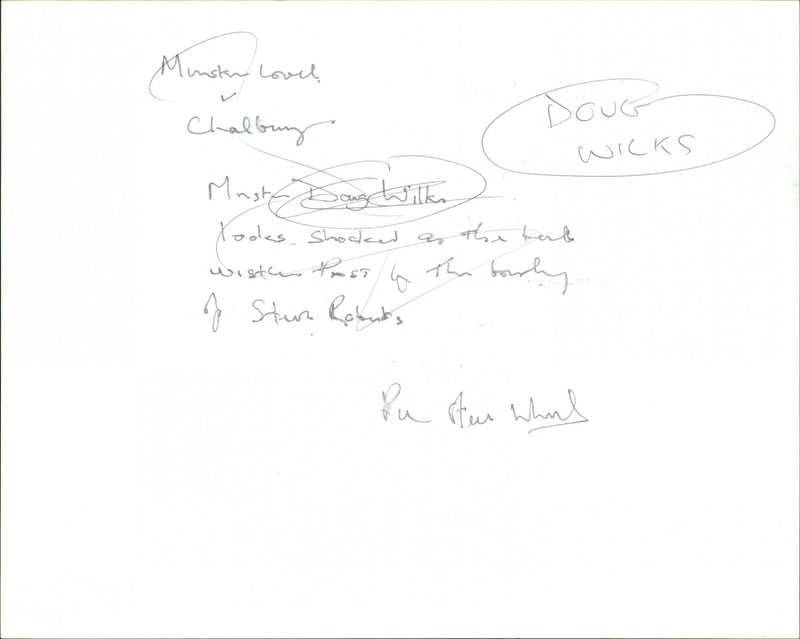 Minster Lovell
v
Chalbury
DOUG
WICKS
Minster Doug Wilks
looks shocked as the ball
by the bowling
of Steve Roberts
Pic